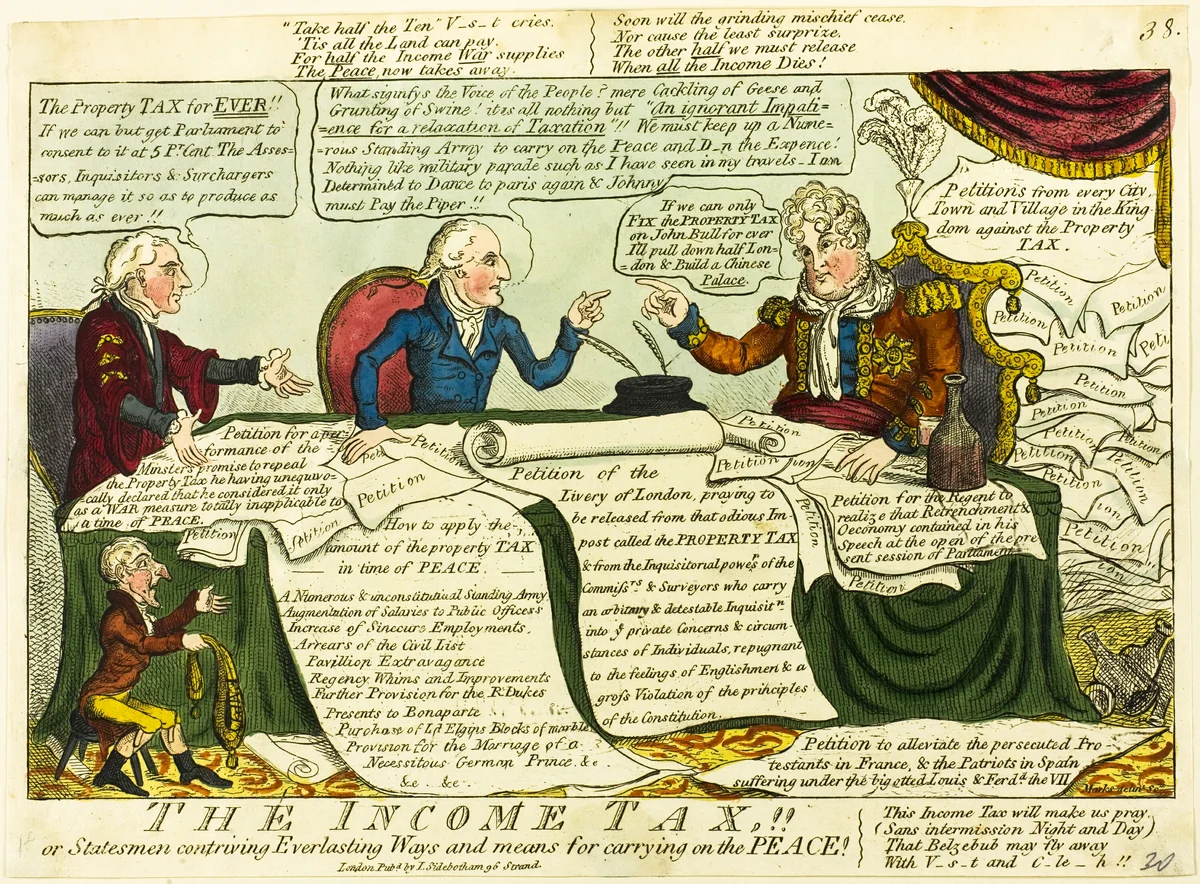 "Take half the Ten" V_s_t cries.
'Tis all the Land can pay.
For half the Income War supplies
The Peace now takes away.
Soon will the grinding mischief cease,
Nor cause the least surprize.
The other half we must release
When all the Income Dies!
38.
The Property TAX for EVER!!
If we can but get Parliament to
consent to it at 5 Pr. Cent. The Asses=
=sors, Inquisitors & Surchargers
can manage it so as to produce as
much as ever!!
What signifys the Voice of the People? mere Cackling of Geese and
Grunting of Swine! it is all nothing but "An ignorant Impati=
=ence for a relaxation of Taxation"!! We must keep up a Nume=
=rous Standing Army to carry on the Peace and D_n the Expence!
Nothing like military parade such as I have seen in my travels - I am
Determined to Dance to paris again & Johnny
must Pay the Piper!!
If we can only
FIX the PROPERTY TAX
on John Bull for ever
I'll pull down half Lon=
=don & Build a Chinese
Palace.
Petitions from every City,
Town and Village in the King
dom against the Property
TAX.
Petition
Petition
Petition
Petition
Peti
Petition
Petition
Petition
Petition
Petition
Petition
ion
Petition
ion
Petition for a per=
=formance of the
Minsters promise to repeal
the Property Tax he having unequivo=
=cally declared that he considered it only
as a WAR measure totally inapplicable to
a time of PEACE.
Peti
Petition
Petition
Petition
Petition
Petition
Petition
ion
Petition
Petition
How to apply the
amount of the property TAX
in time of PEACE.
A Numerous & unconstitutional Standing Army
Augmentation of Salaries to Public Officess
Increase of Sinecure Employments,
Arrears of the Civil List
Pavillion Extravagance
Regency Whims and Improvements
Further Provision for the Rl. Dukes
Presents to Bonaparte
Purchase of Ld Elgins Blocks of marble
Provision for the Marriage of a
Necessitous German Prince. &c
&c &c
Petition of the
Livery of London, praying to
be released from that odious Im-
post called the PROPERTY TAX
& from the Inquisitorial powers of the
Commissrs & Surveyors who carry
an arbitrary & detestable Inquisitn
into ye private Concerns & circum-
stances of Individuals, repugnant
to the feelings of Englishmen & a
gross Violation of the principles
of the Constitution.
Petition for the Regent to
realize that Retrenchment &
Oeconomy contained in his
Speech at the open of the pre
sent session of Parliament
Petition to alleviate the persecuted Pro-
testants in France, & the Patriots in Spain
suffering under the bigotted Louis & Ferdd. the VII
THE INCOME TAX,!!
or Statesmen contriving Everlasting Ways and means for carrying on the PEACE!
London Pubd by I. Sidebotham 96 Strand.
This Income Tax will make us pray.
(Sans intermission Night and Day)
That Belzebub may fly away
With V_s_t and C_le_h!!
30